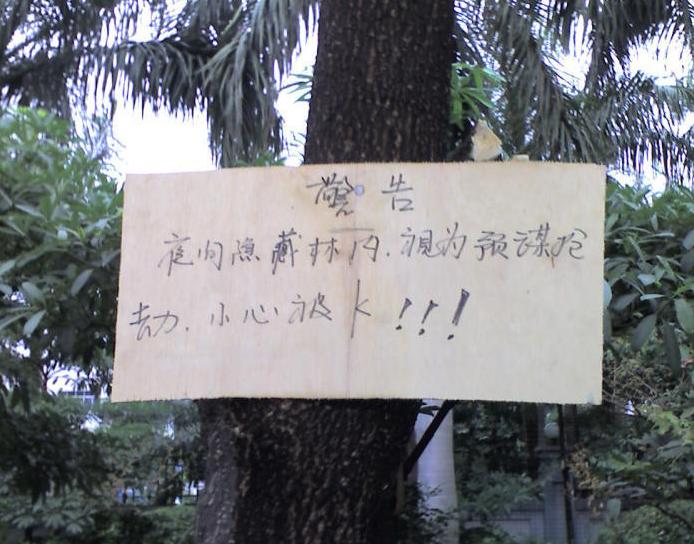 警告
夜间隐藏林内.视为预谋抢
劫.小心被K!!!